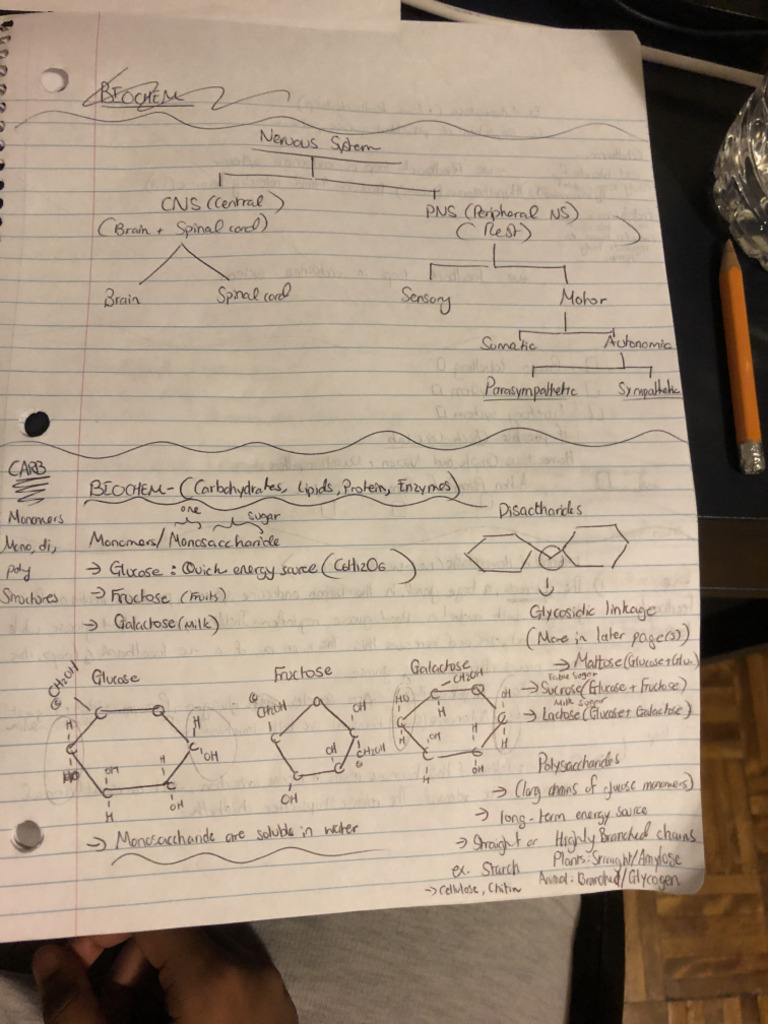 BIOCHEM
Nervous System
CNS (Central)
PNS (Peripheral NS)
(Brain + Spinal cord)
(Rest)
Brain
Spinal cord
Sensory
Motor
Somatic
Autonomic
Parasympathetic
Sympathetic
CARB
Monomers
Mono, di,
poly
Structures
BIOCHEM - (Carbohydrates, Lipids, Protein, Enzymes)
one
sugar
Monomers/Monosaccharide
→ Glucose : Quick energy source (C6H12O6)
→ Fructose (Fruits)
→ Galactose (Milk)
Disaccharides
Glycosidic linkage
(More in later page(s))
→ Maltose (Glucose + Glu.)
Table Sugar
→ Sucrose (Glucose + Fructose)
Milk Sugar
→ Lactose (Glucose + Galactose)
Glucose
⑥CH2OH
C
O
H
C
HO
H
C
OH
OH
C
H
H
C
OH
Fructose
⑥
CH2OH
O
OH
C
C
CH2OH
OH
C
C
H
OH
Galactose
CH2OH
HO
C
O
OH
C
H
C
H
H
OH
H
C
C
H
OH
→ Monosaccharide are soluble in water
Polysaccharides
→ (long chains of glucose monomers)
→ long-term energy source
→ Straight or Highly Branched chains
ex. Starch Plants: Straight/Amylose
→ Cellulose, Chitin Animal: Branched/Glycogen